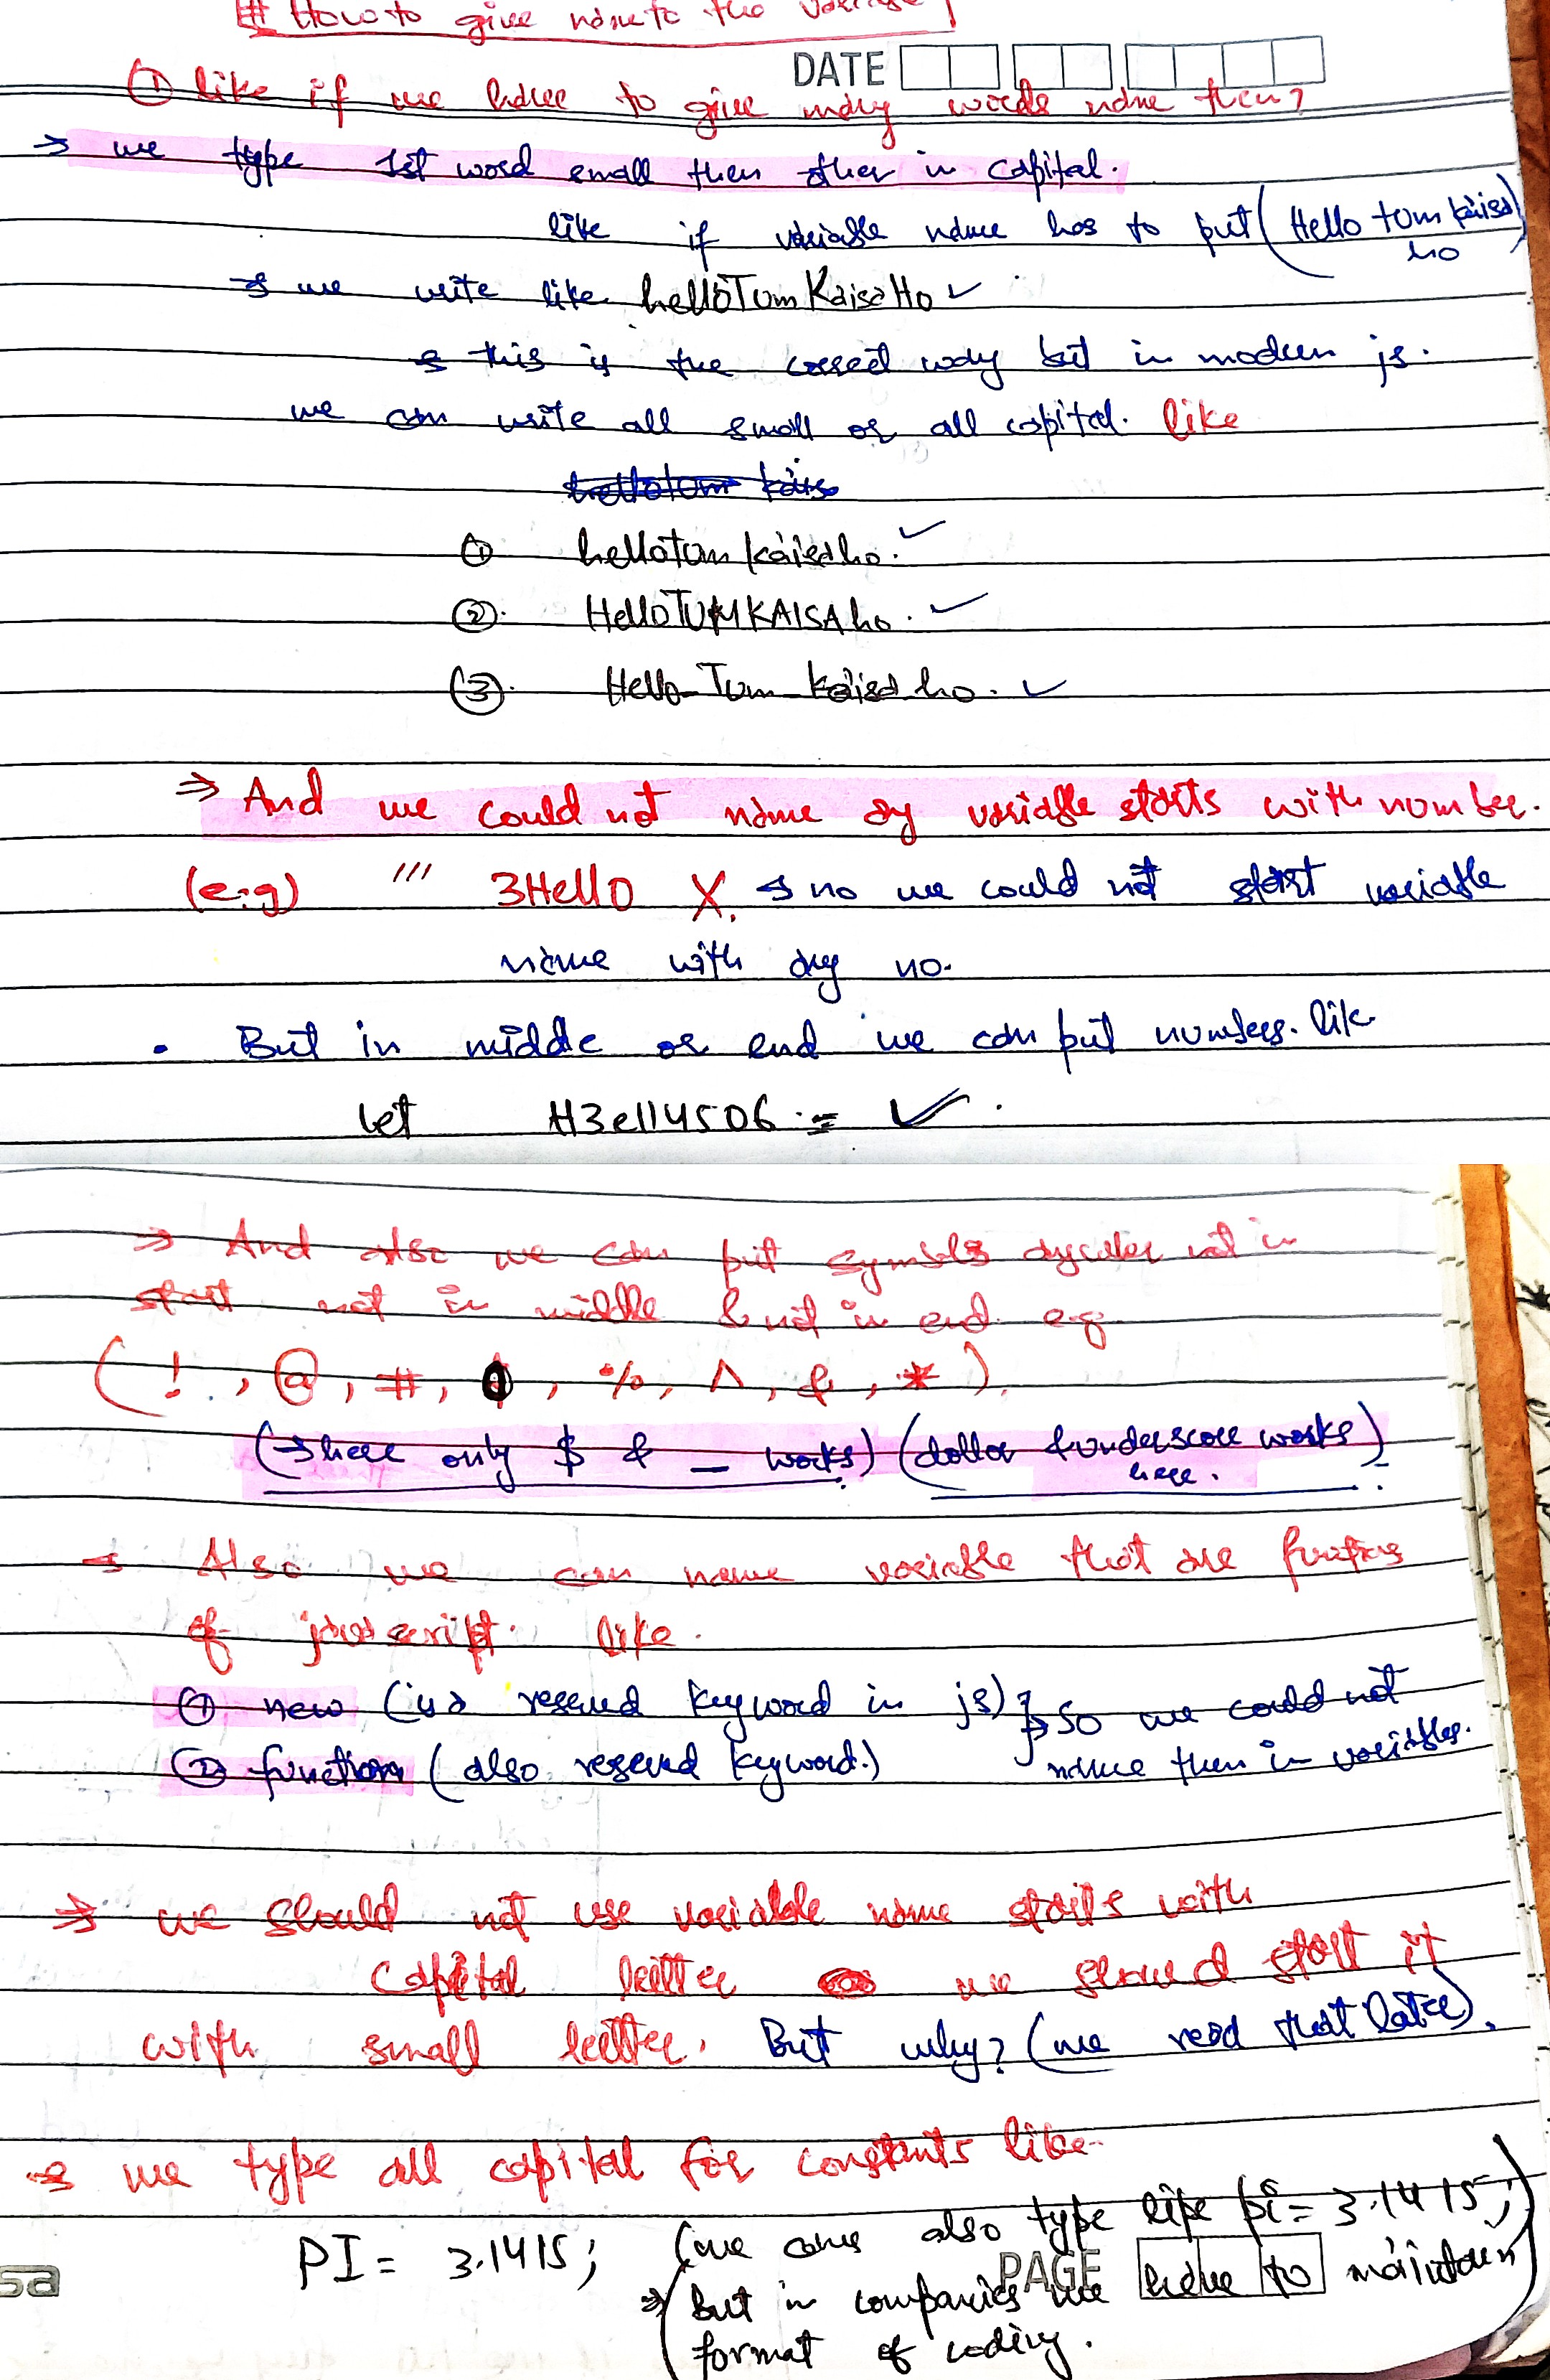 # How to give name to the variable
DATE
① like if we have to give many words name then?
→ we type 1st word small then other in capital.
like if variable name has to put (Hello tum kaisa
ho)
→ we write like helloTumKaisaHo ✓
→ this is the correct way but in modern js.
we can write all small or all capital. like
① hellotumkaisaho. ✓
②. HelloTUMKAISAho. ✓
③. Hello_Tum_kaisa_ho. ✓
⇒ And we could not name any variable starts with number.
(e.g) ''' 3Hello X. → no we could not start variable
name with any no.
• But in middle or end we can put numbers. like
let H3ell4506 = ✓.
⇒ And also we can put symbols not in
start not in middle & not in end e.g
(!, @, #, , %, ^, &, *).
(→ here only $ & _ works) (dollar & underscore works)
here.
→ Also we can name variable that are
of javascript. like.
① new (is a reserved keyword in js) } → So we could not
② function (also reserved keyword.) name them in variables.
⇒ we should not use variable name starts with
capital letter we should start it
with small letter. But why? (we read that later).
→ we type all capital for constants like
PI = 3.1415; (we can also type like pi = 3.1415;
PAGE
→ but in companies we have to maintain
format of coding.)
sa